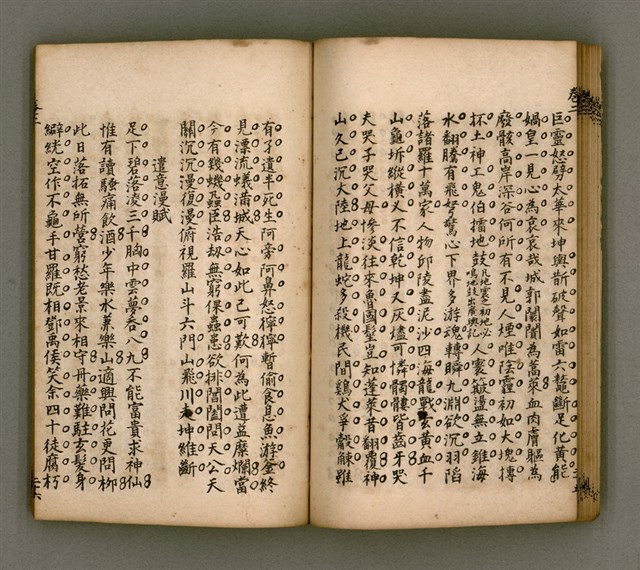 巨靈怒劈太華來坤輿斷破聲如雷六鼇斷足化黃能
媧皇一見心為哀哀哉城郭闤闠為蒿萊血肉膚軀為
廢骸高岸深谷何所有不見人煙唯陰霾初如大塊摶
抔土神工鬼伯擂地鼓凡地震之初地必鳴地鼓出廣輿記人寰簸盪無立錐海
水翻騰有飛弩驚心下界多游魂轉瞬九淵欲沉羽陷
落諸羅十萬家人物邱陵盡泥沙四海龍戰玄黃血千
山龜坼縱橫叉不信乾坤又灰燼可憐髑髏皆齒牙哭
夫哭子哭父母慘淡往來魯國髽豈知蓬萊昔翻覆神
山久已沉大陸地上龍蛇多殺機民間鷄犬爭觳觫雖
有孑遺半死生阿旁阿鼻怒獰獰暫偷食息魚游釜終
見漂流蟻滿城天心如此已可歎何為此遭益糜爛當
今有幾蟣蝨臣浩劫無窮倮蟲患欲排閶闔問天公天
關沉沉漫復漫俯視羅山斗六門山飛川走坤維斷
遣意漫賦
足下碧落凌三千胸中雲夢吞八九不能富貴求神仙
惟有讀騷痛飲酒少年樂水兼樂山適興問花更問柳
此日落拓無所營窮愁老景來相守丹藥難駐玄髮身
澼絖空作不龜手甘羅既相鄧禹侯笑余四十徒腐朽